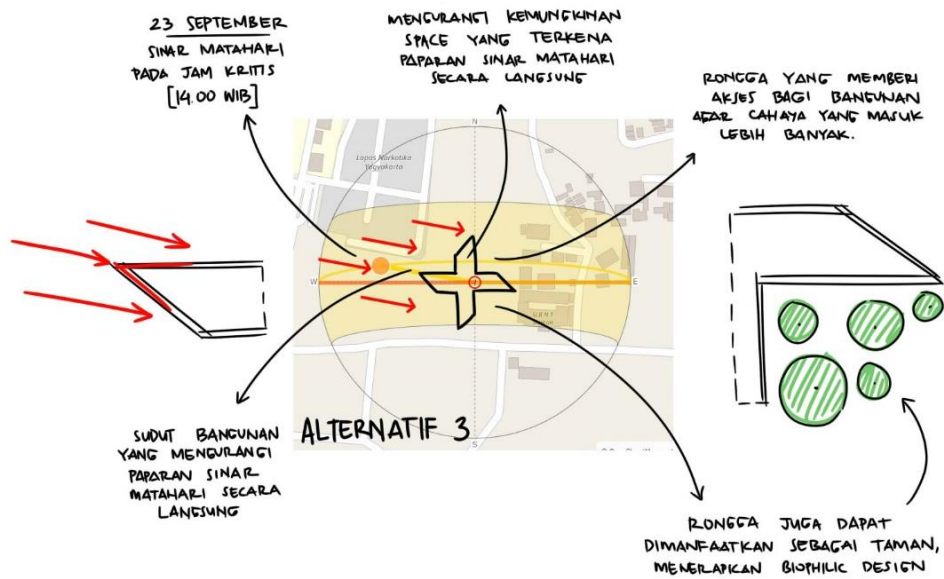 23 SEPTEMBER
SINAR MATAHARI
PADA JAM KRITIS
[14.00 WIB]
MENGURANGI KEMUNGKINAN
SPACE YANG TERKENA
PAPARAN SINAR MATAHARI
SECARA LANGSUNG
RONGGA YANG MEMBERI
AKSES BAGI BANGUNAN
AGAR CAHAYA YANG MASUK
LEBIH BANYAK.
N
Lapas Narkotika
Yogyakarta
W
E
SLB N 1
S
ALTERNATIF 3
SUDUT BANGUNAN
YANG MENGURANGI
PAPARAN SINAR
MATAHARI SECARA
LANGSUNG
RONGGA JUGA DAPAT
DIMANFAATKAN SEBAGAI TAMAN,
MENERAPKAN BIOPHILIC DESIGN